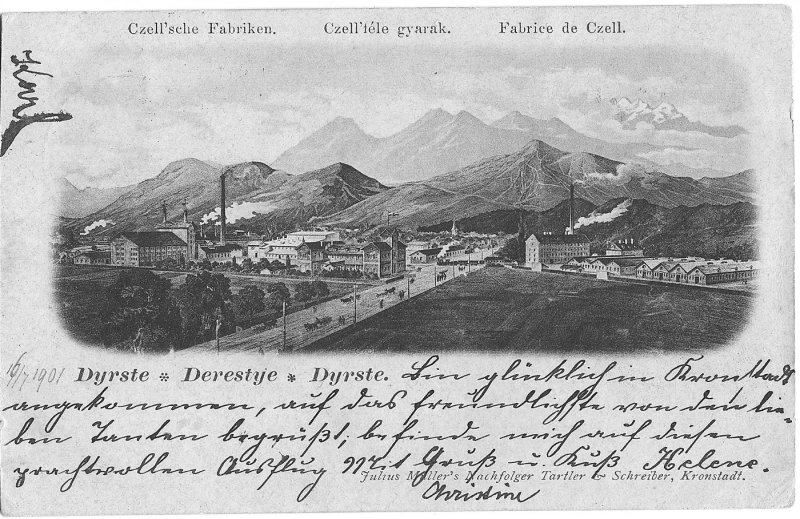 Czell'sche Fabriken. Czell'féle gyarak. Fabrice de Czell.
16/7 1901 Dyrste * Derestye * Dyrste. Bin glücklich in Kronstadt
angekommen, auf das freundlichste von den lie-
ben Tanten begrüßt; befinde mich auf diesen
prachtvollen Ausflug Mit Gruß u. Kuß Helene.
Julius Müller's Nachfolger Tartler & Schreiber, Kronstadt.